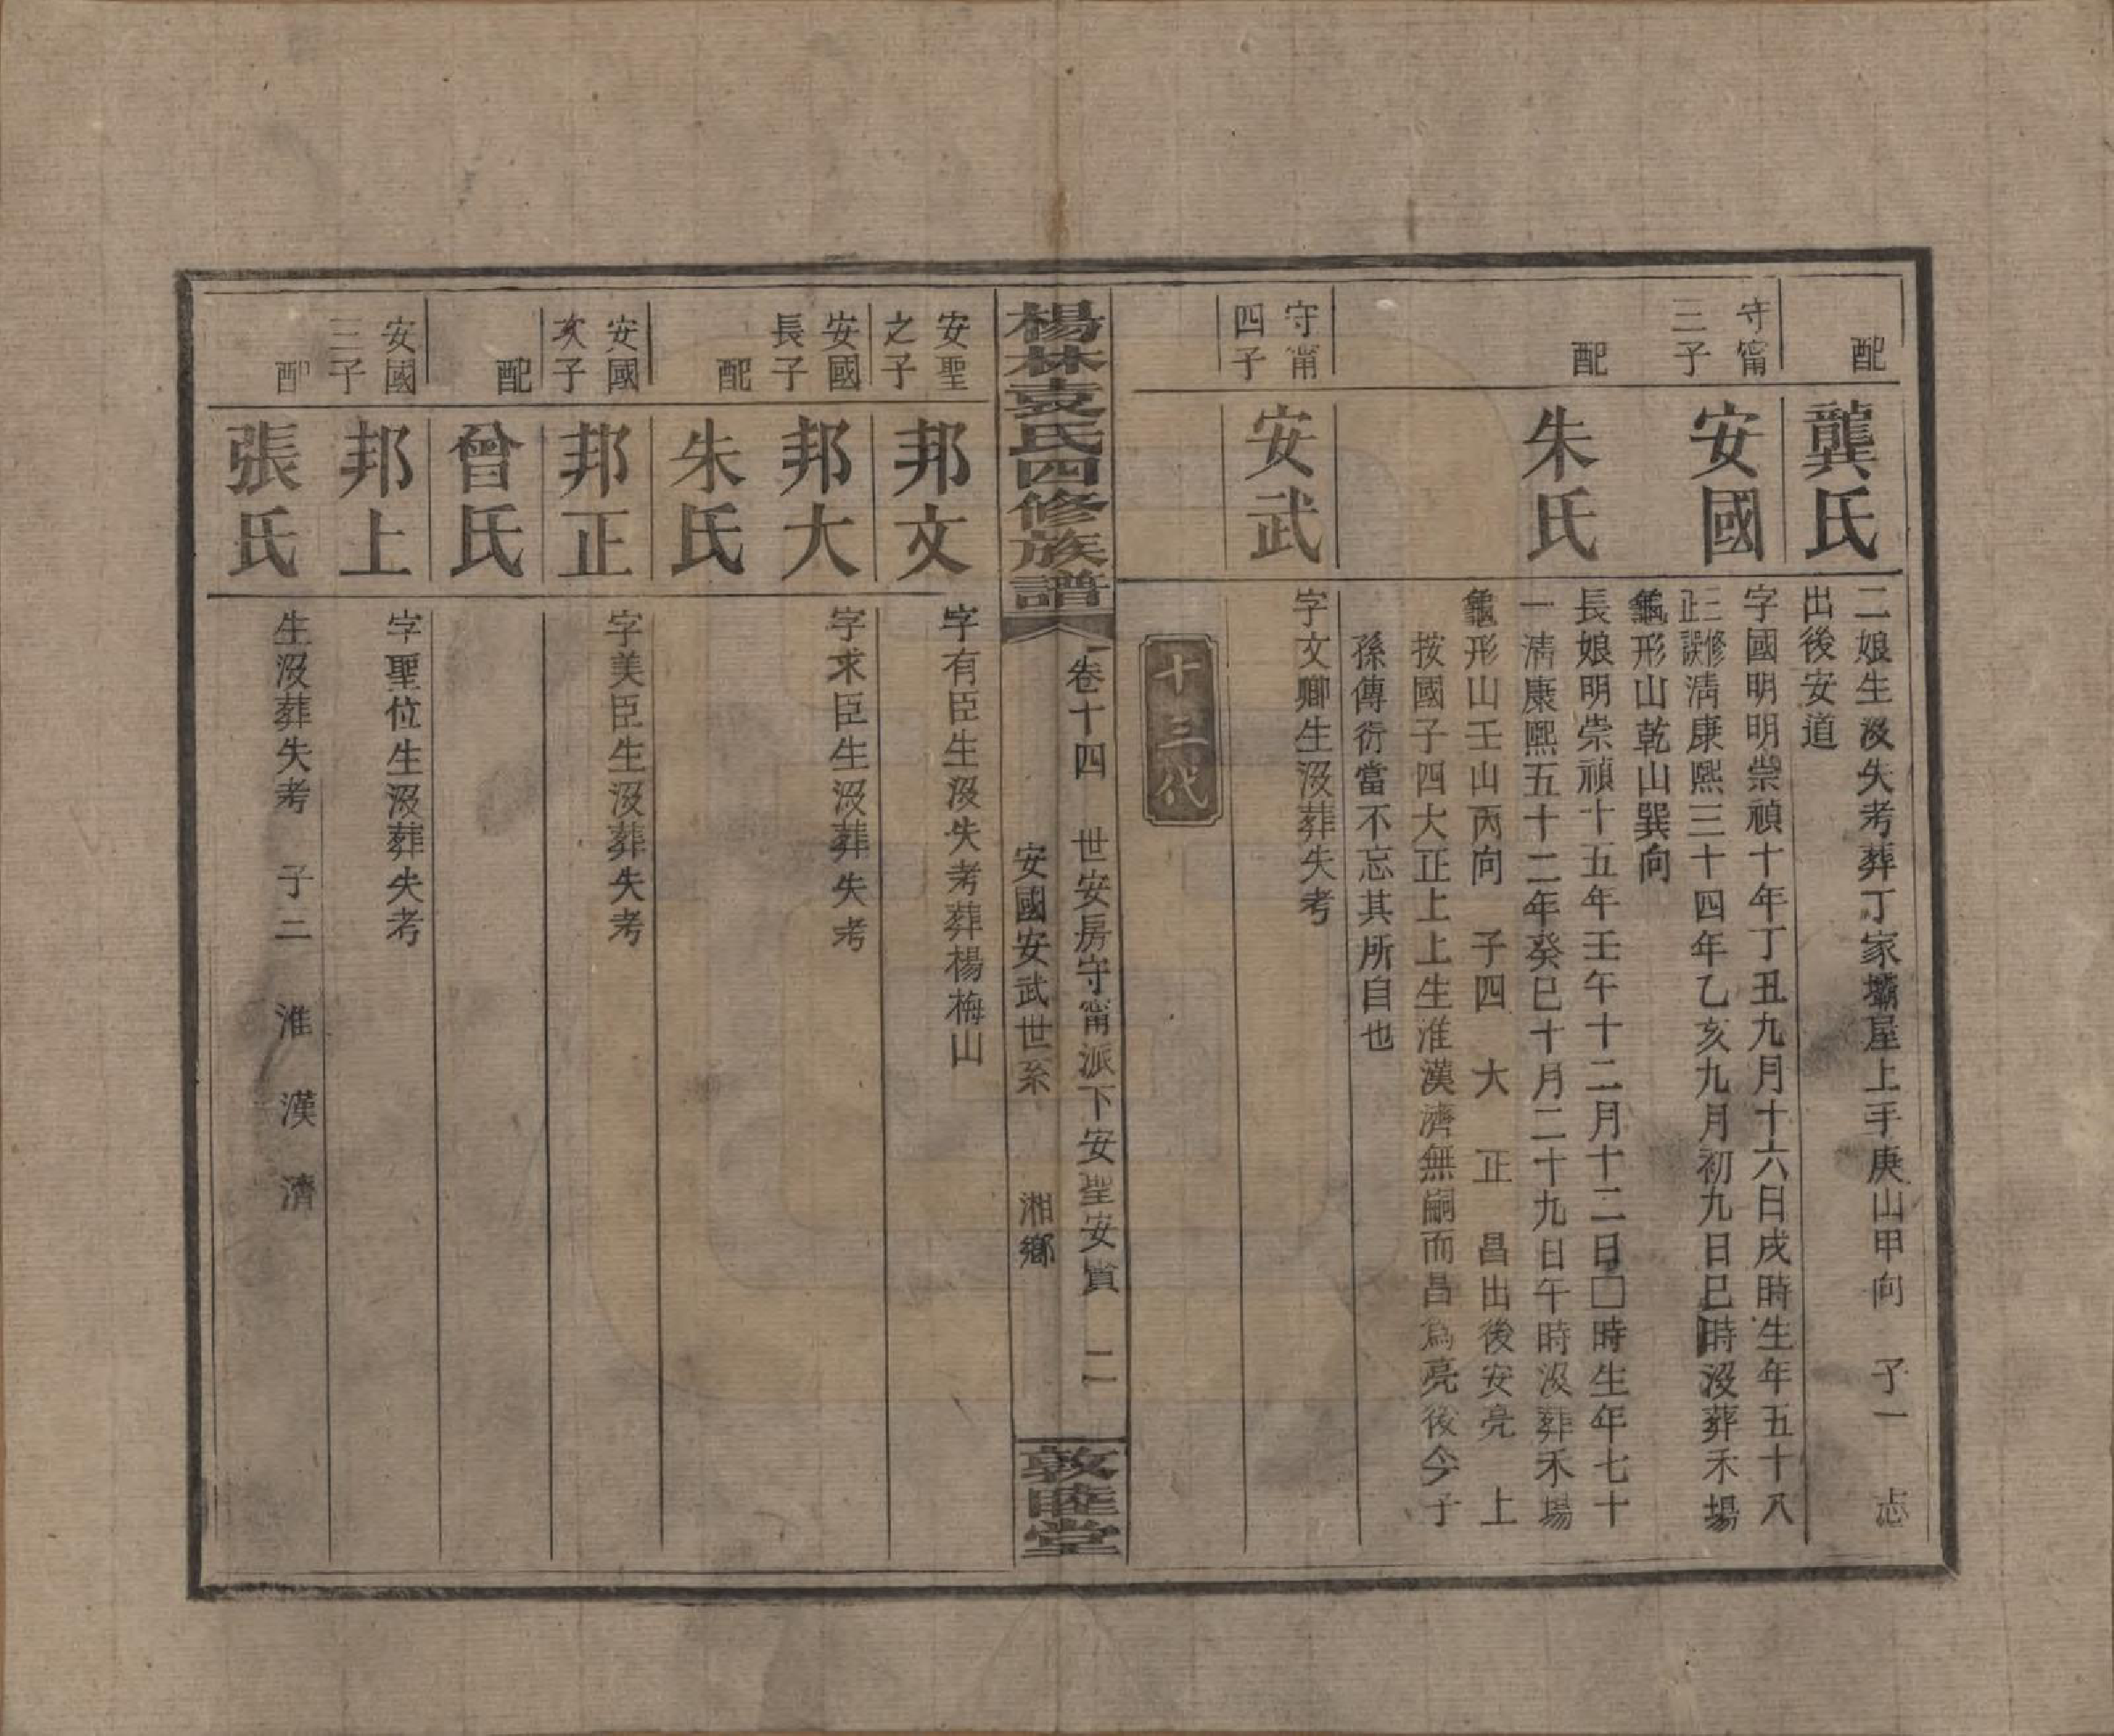 配
龔氏
二娘生歿失考葬丁家壩屋上手庚山甲向　子一　志
出後安道
守甯三子
安國
字國明明崇禎十年丁丑九月十六日戌時生年五十八
三修正誤清康熙三十四年乙亥九月初九日巳時歿葬禾場
龜形山乾山巽向
配
朱氏
長娘明崇禎十五年壬午十二月十二日□時生年七十
一清康熙五十二年癸巳十月二十九日午時歿葬禾場
龜形山壬山丙向　子四　大　正　昌出後安亮　上
按國子四大正上上生淮漢濟無嗣而昌爲亮後今子
孫傳衍當不忘其所自也
守甯四子
安武
字文卿生歿葬失考
十三代
楊林袁氏四修族譜
卷十四　世安房守甯派下安聖安賞　二
安國安武世系　湘鄉
敦睦堂
安聖之子
邦文
字有臣生歿失考葬楊梅山
安國長子
邦大
字求臣生歿葬失考
配
朱氏
安國次子
邦正
字美臣生歿葬失考
配
曾氏
安國三子
邦上
字聖位生歿葬失考
配
張氏
生歿葬失考　子二　淮　漢　濟